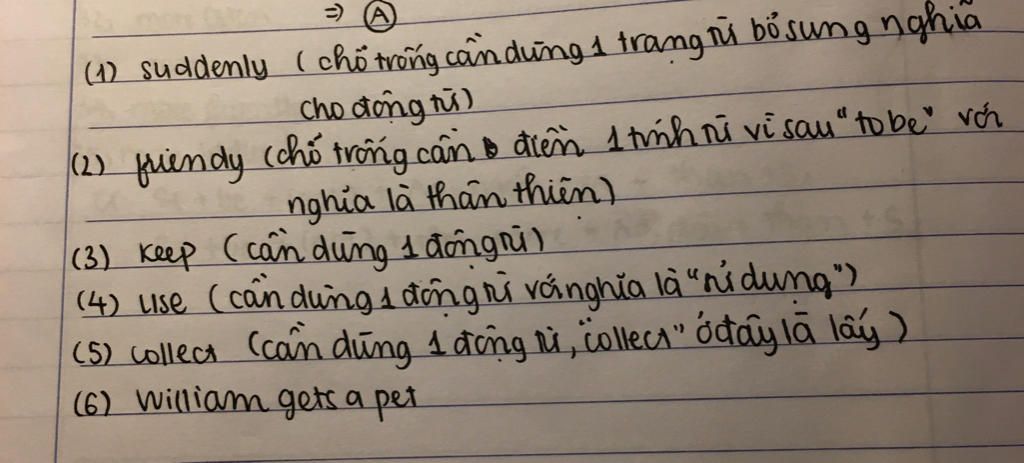 ⇒ Ⓐ
(1) suddenly (chỗ trống cần dùng 1 trạng từ bổ sung nghĩa
cho động từ)
(2) friendy (chỗ trống cần điền 1 tính từ vì sau "to be" với
nghĩa là thân thiện)
(3) keep (cần dùng 1 động từ)
(4) use (cần dùng 1 động từ với nghĩa là "sử dụng")
(5) collect (cần dùng 1 động từ, "collect" ở đây là lấy)
(6) William gets a pet